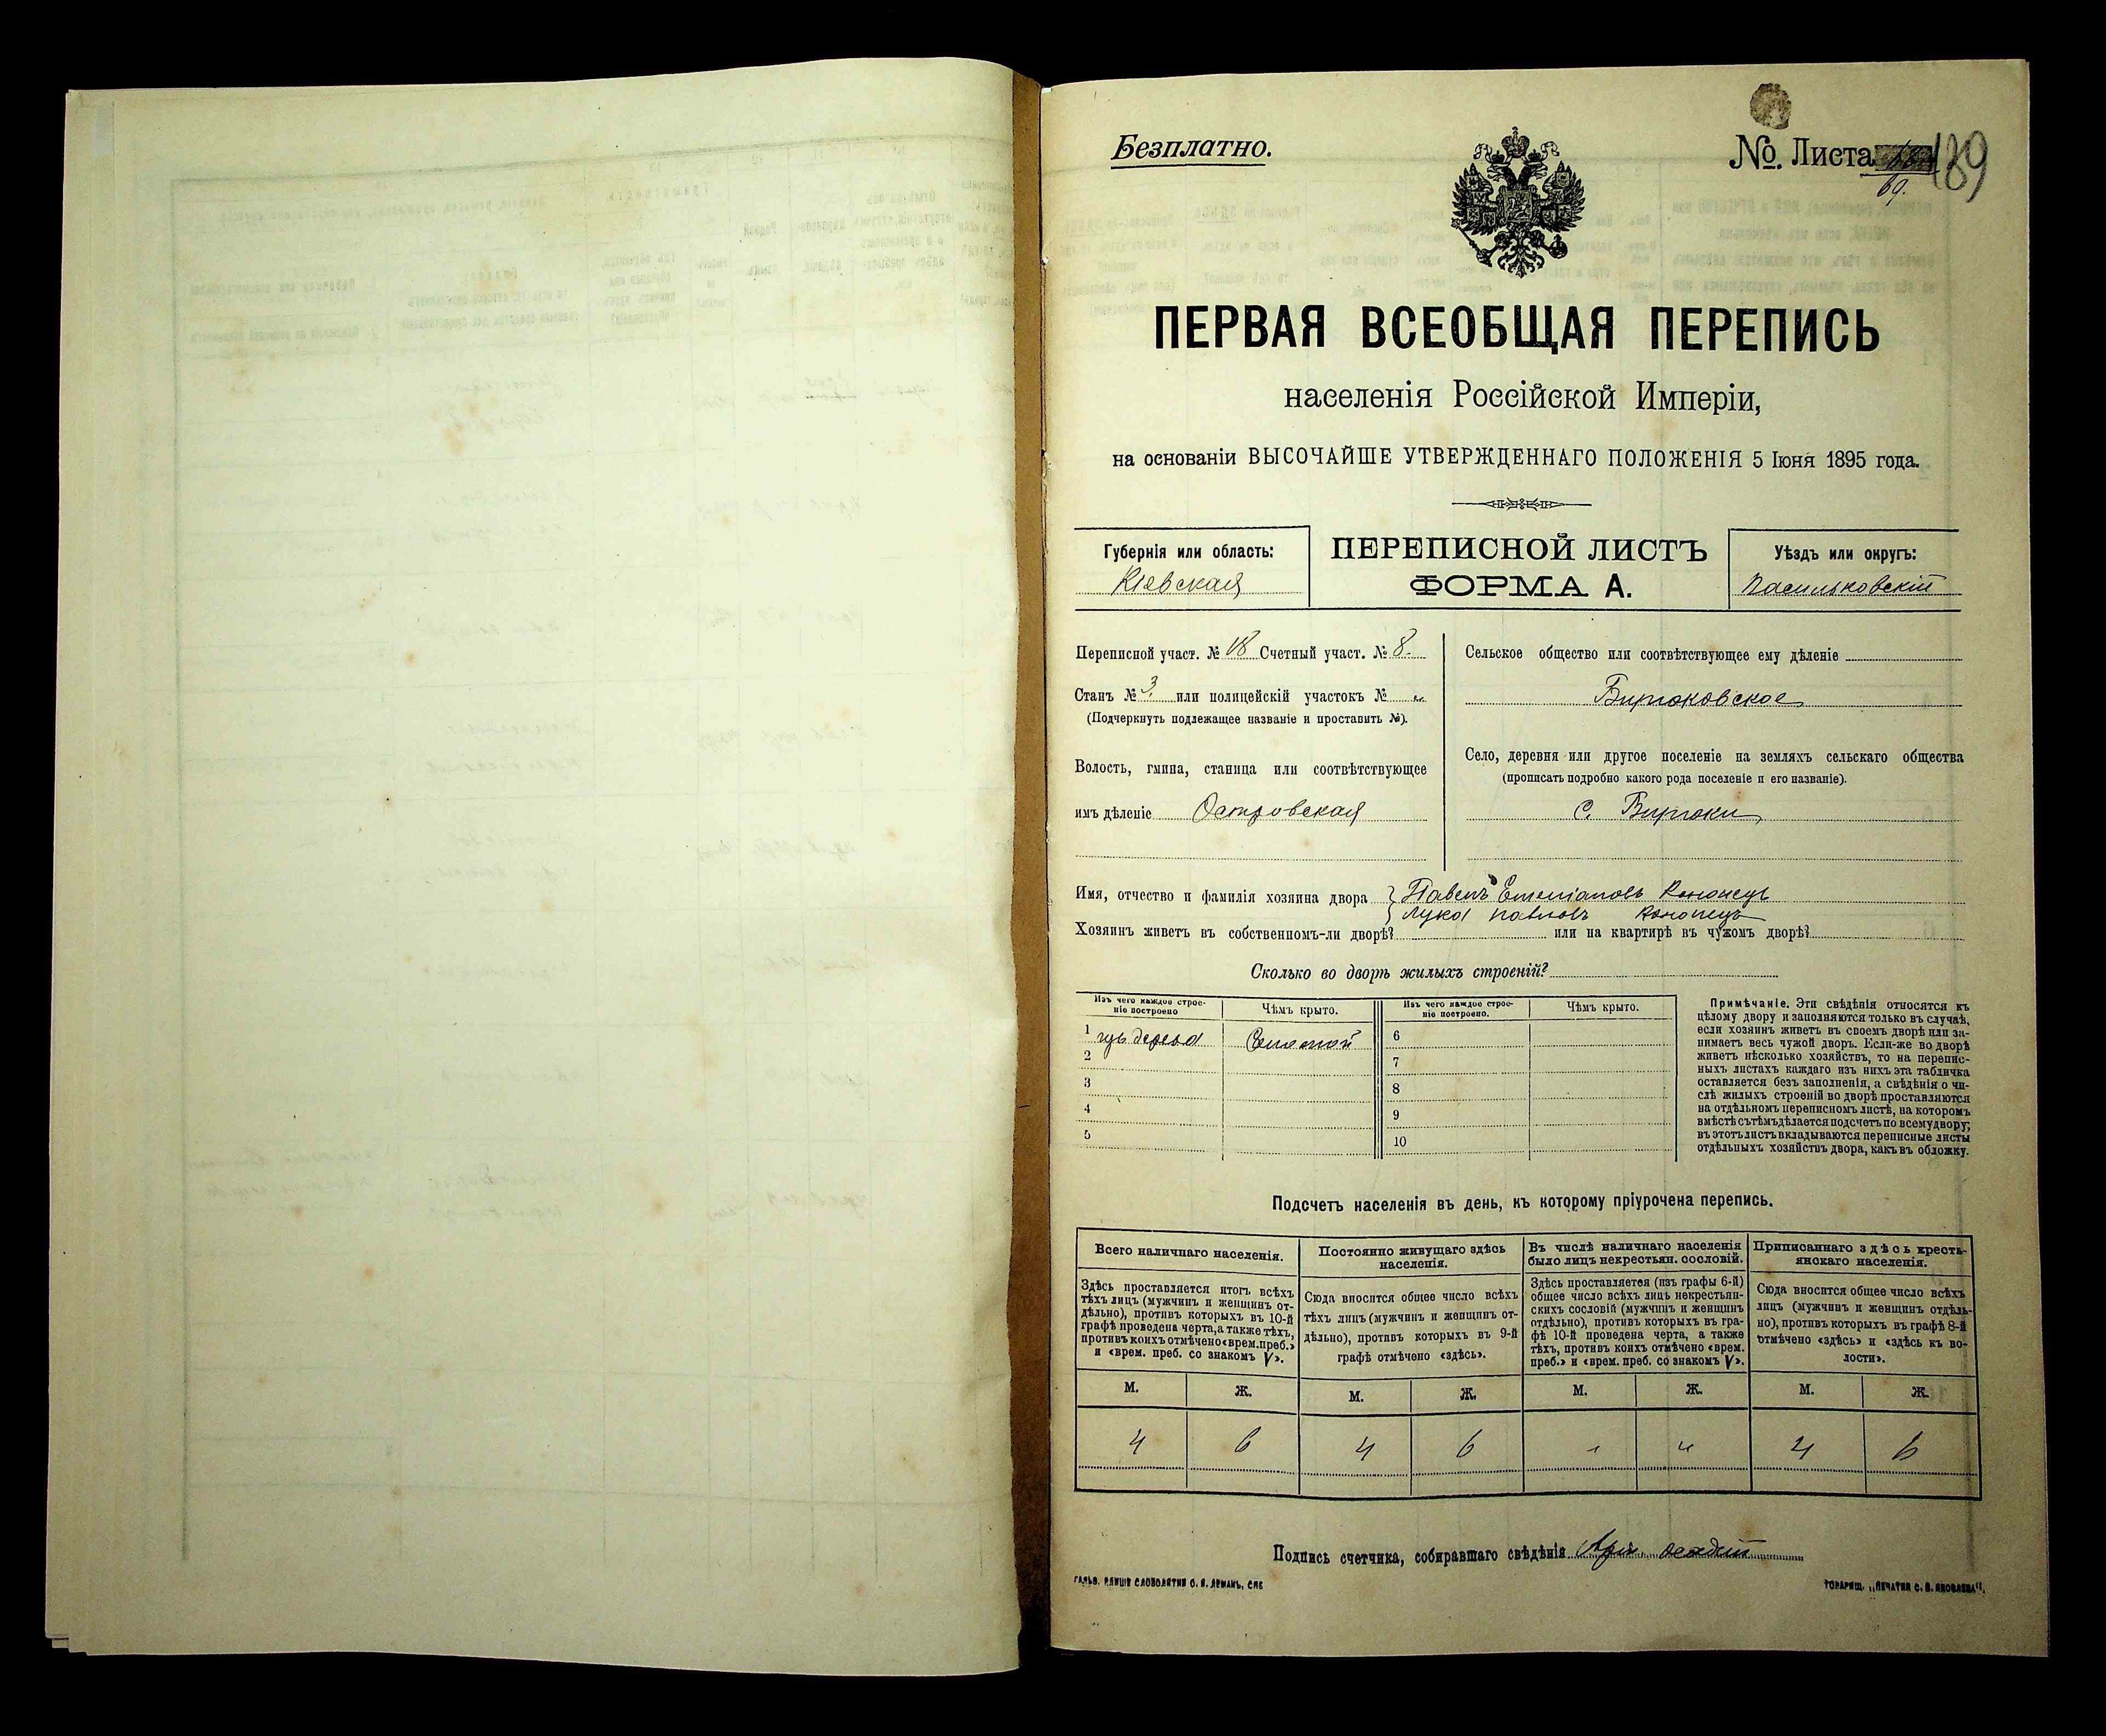 Безплатно.
№. Листа 189
60.
ПЕРВАЯ ВСЕОБЩАЯ ПЕРЕПИСЬ
населенія Россійской Имперіи,
на основаніи ВЫСОЧАЙШЕ УТВЕРЖДЕННАГО ПОЛОЖЕНІЯ 5 Іюня 1895 года.
Губернія или область:
Кіевская
ПЕРЕПИСНОЙ ЛИСТЪ
ФОРМА А.
Уѣздъ или округъ:
Васильковскій
Переписной участ. № 18 Счетный участ. № 8.
Станъ № 3. или полицейскій участокъ № „
(Подчеркнуть подлежащее названіе и проставить №).
Волость, гмина, станица или соотвѣтствующее
имъ дѣленіе Островская
Сельское общество или соотвѣтствующее ему дѣленіе
Бирюковское
Село, деревня или другое поселеніе на земляхъ сельскаго общества
(прописать подробно какого рода поселеніе и его названіе).
С. Бирюки
Имя, отчество и фамилія хозяина двора Павелъ Емеліановъ Кононецъ
Лука Павловъ Кононецъ
Хозяинъ живетъ въ собственномъ-ли дворѣ? или на квартирѣ въ чужомъ дворѣ?
Сколько во дворѣ жилыхъ строеній?
Изъ чего каждое строе-
ніе построено
Чѣмъ крыто.
Изъ чего каждое строе-
ніе построено.
Чѣмъ крыто.
1 изъ дерева Соломой
2
3
4
5
6
7
8
9
10
Примѣчаніе. Эти свѣдѣнія относятся къ
цѣлому двору и заполняются только въ случаѣ,
если хозяинъ живетъ въ своемъ дворѣ или за-
нимаетъ весь чужой дворъ. Если-же во дворѣ
живетъ нѣсколько хозяйствъ, то на перепис-
ныхъ листахъ каждаго изъ нихъ эта табличка
оставляется безъ заполненія, а свѣдѣнія о чи-
слѣ жилыхъ строеній во дворѣ проставляются
на отдѣльномъ переписномъ листѣ, на которомъ
вмѣстѣ съ тѣмъ дѣлается подсчетъ по всему двору;
въ этотъ листъ вкладываются переписные листы
отдѣльныхъ хозяйствъ двора, какъ въ обложку.
Подсчетъ населенія въ день, къ которому пріурочена перепись.
Всего наличнаго населенія.
Здѣсь проставляется итогъ всѣхъ
тѣхъ лицъ (мужчинъ и женщинъ от-
дѣльно), противъ которыхъ въ 10-й
графѣ проведена черта, а также тѣхъ,
противъ коихъ отмѣчено «врем. преб.»
и «врем. преб. со знакомъ V».
Постоянно живущаго здѣсь
населенія.
Сюда вносится общее число всѣхъ
тѣхъ лицъ (мужчинъ и женщинъ от-
дѣльно), противъ которыхъ въ 9-й
графѣ отмѣчено «здѣсь».
Въ числѣ наличнаго населенія
было лицъ некрестьян. сословій.
Здѣсь проставляется (изъ графы 6-й)
общее число всѣхъ лицъ некрестьян-
скихъ сословій (мужчинъ и женщинъ
отдѣльно), противъ которыхъ въ гра-
фѣ 10-й проведена черта, а также
тѣхъ, противъ коихъ отмѣчено «врем.
преб.» и «врем. преб. со знакомъ V».
Приписаннаго здѣсь кресть-
янскаго населенія.
Сюда вносится общее число всѣхъ
лицъ (мужчинъ и женщинъ отдѣль-
но), противъ которыхъ въ графѣ 8-й
отмѣчено «здѣсь» и «здѣсь къ во-
лости».
М. Ж. М. Ж. М. Ж. М. Ж.
4 6 4 6 „ „ 4 6
Подпись счетчика, собиравшаго свѣдѣнія
ГАЛЬВ. КЛИШЕ СЛОВОЛИТНИ О. И. ЛЕМАНЪ, СПБ
ТОВАРИЩ. „ПЕЧАТНЯ С. П. ЯКОВЛЕВА“.